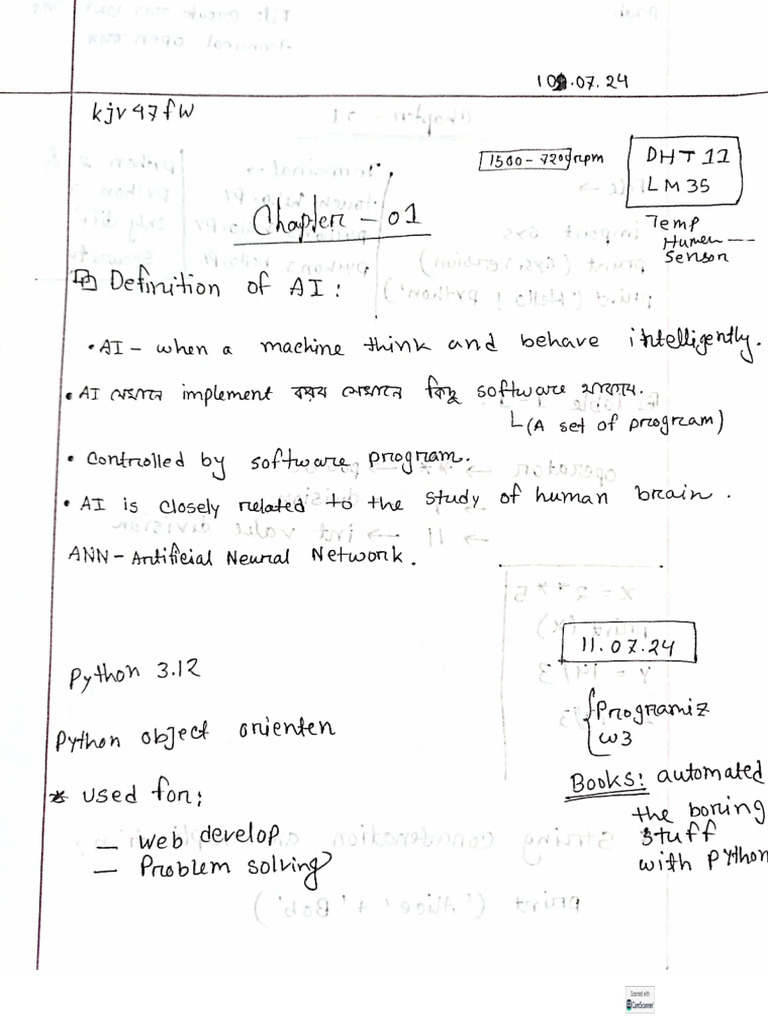 10.07.24
kjv47fW
1500-7200 rpm
DHT 11
LM35
Temp
Humen ---
Senson
Chapter - 01
Definition of AI :
• AI - when a machine think and behave intelligently.
• AI যেখানে implement করব সেখানে কিছু software থাকবে.
(A set of program)
• Controlled by software program.
• AI is closely related to the study of human brain.
ANN - Artificial Neural Network.
11.07.24
Python 3.12
Programiz
w3
Python object orienten
Books: automated
the boring
stuff
with Python
* used for:
— web develop
— Problem solving
Scanned with
CamScanner